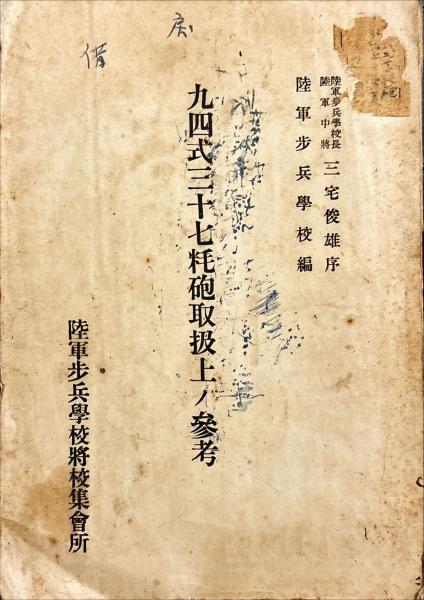 陸軍步兵學校長
陸軍中將
三宅俊雄序
陸軍步兵學校編
九四式三十七粍砲取扱上ノ參考
陸軍步兵學校將校集會所
借